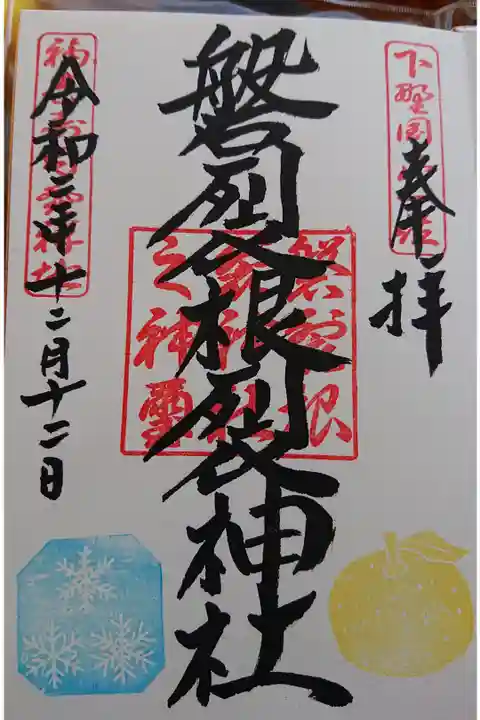 奉拝
磐裂根裂神社
令和二年十二月十二日
磐裂根
裂神社
之神璽